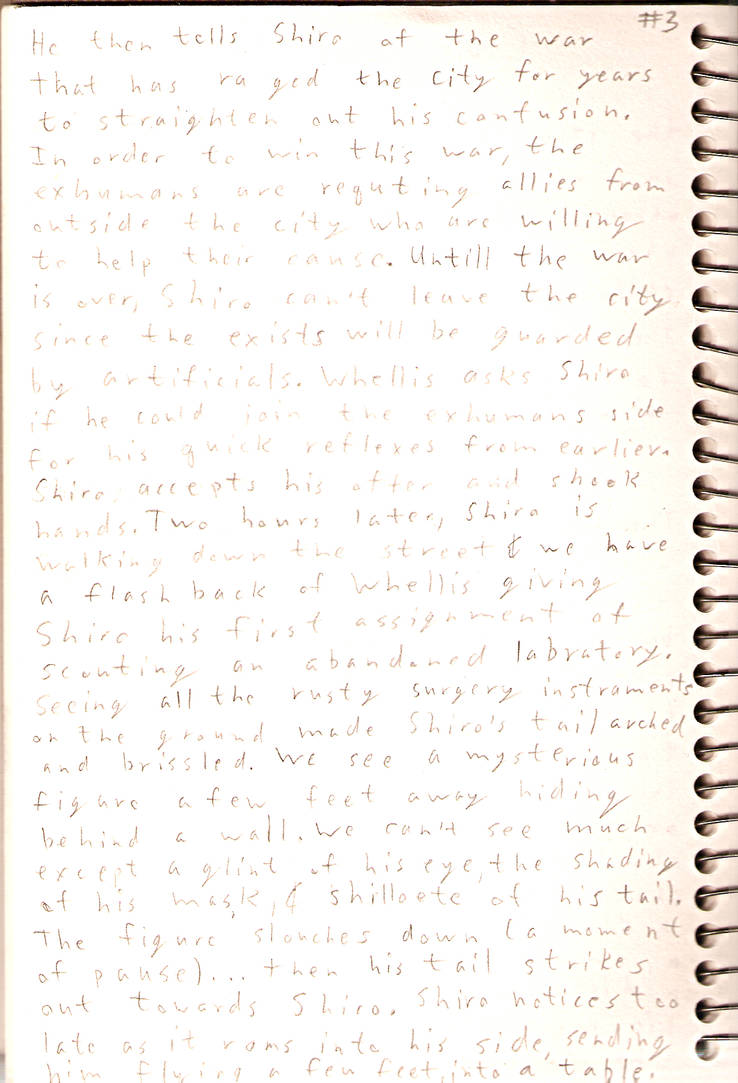 #3
He then tells Shiro of the war
that has raged the city for years
to straighten out his confusion.
In order to win this war, the
exhumans are requting allies from
outside the city who are willing
to help their cause. Untill the war
is over, Shiro can't leave the city
since the exists will be guarded
by artificials. Whellis asks Shiro
if he could join the exhumans side
for his quick reflexes from earlier.
Shiro accepts his offer and shook
hands. Two hours later, Shiro is
walking down the street & we have
a flash back of Whellis giving
Shiro his first assignment of
scouting an abandoned labratory.
Seeing all the rusty surgery instraments
on the ground made Shiro's tail arched
and brissled. We see a mysterious
figure a few feet away hiding
behind a wall. We can't see much
except a glint of his eye, the shading
of his mask, & shilloete of his tail.
The figure slouches down (a moment
of pause)... then his tail strikes
out towards Shiro. Shiro notices too
late as it rams into his side, sending
him flying a few feet, into a table.